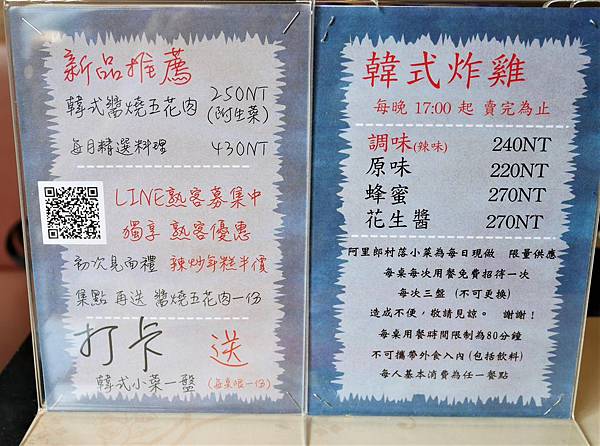 新品推薦
韓式醬燒五花肉 250NT
(附生菜)
每月精選料理 430NT
LINE熟客募集中
獨享 熟客優惠
初次見面禮 辣炒年糕半價
集點 再送 醬燒五花肉一份
打卡 送
韓式小菜一盤 (每桌限一份)
韓式炸雞
每晚 17:00 起 賣完為止
調味(辣味) 240NT
原味 220NT
蜂蜜 270NT
花生醬 270NT
阿里郎村落小菜為每日現做 限量供應
每桌每次用餐免費招待一次
每次三盤 (不可更換)
造成不便,敬請見諒。 謝謝!
每桌用餐時間限制為80分鐘
不可攜帶外食入內(包括飲料)
每人基本消費為任一餐點